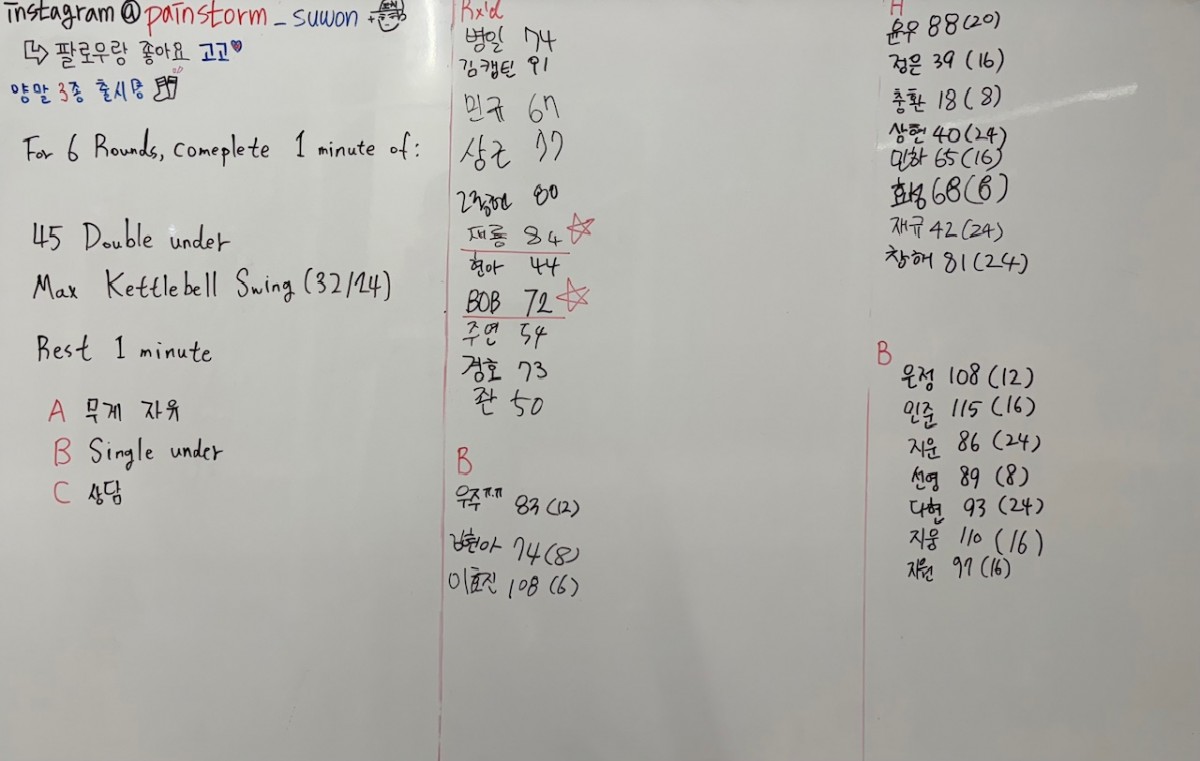 instagram @ painstorm _ suwon +
↳ 팔로우랑 좋아요 고고♥
양말 3종 출시중
For 6 Rounds, comeplete 1 minute of:
45 Double under
Max Kettlebell Swing (32/24)
Rest 1 minute
A 무게 자유
B Single under
C 상담
Rx'd
병일 74
김캡틴 91
민규 67
상근 77
80
재룡 84 ☆
현아 44
BOB 72 ☆
주연 54
경호 73
좐 50
B
우주ㅠㅠ 83 (12)
김현아 74 (8)
이효진 108 (6)
A
윤우 88 (20)
정은 39 (16)
충환 18 (8)
상현 40 (24)
민하 65 (16)
효성 68 (8)
재규 42 (24)
창해 81 (24)
B
은정 108 (12)
인준 115 (16)
지운 86 (24)
선영 89 (8)
다현 93 (24)
지웅 110 (16)
지원 97 (16)